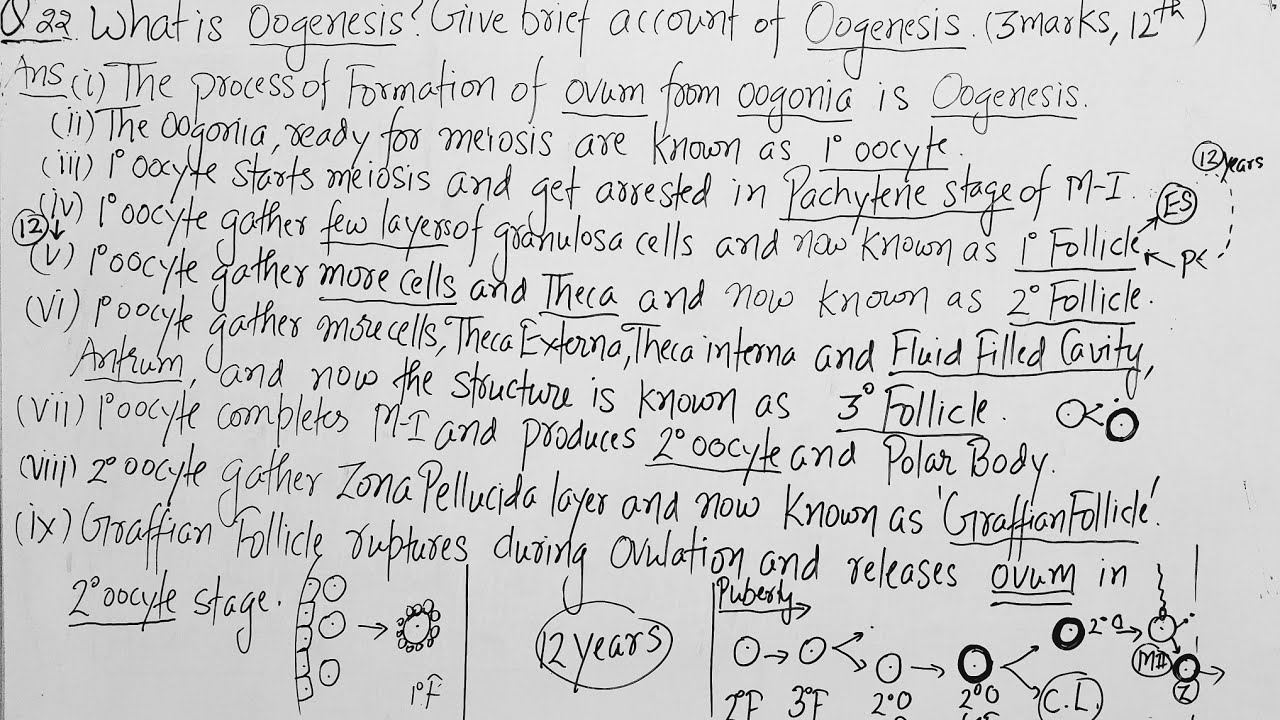 Q 22. What is Oogenesis? Give brief account of Oogenesis. (3marks, 12th)
Ans (i) The process of Formation of ovum from oogonia is Oogenesis.
(ii) The oogonia, ready for meiosis are known as 1° oocyte.
(iii) 1° oocyte starts meiosis and get arrested in Pachytene stage of M-I.
12 years
(iv) 1° oocyte gather few layers of granulosa cells and now known as 1° Follicle
ES
12
(v) 1° oocyte gather more cells and Theca and now known as 2° Follicle.
(vi) 1° oocyte gather more cells, Theca Externa, Theca interna and Fluid Filled Cavity,
Antrum, and now the structure is known as 3° Follicle.
(vii) 1° oocyte completes M-I and produces 2° oocyte and Polar Body.
(viii) 2° oocyte gather Zona Pellucida layer and now known as 'Graffian Follicle'.
(ix) Graffian Follicle ruptures during Ovulation and releases ovum in
2° oocyte stage.
1°F
12 years
Puberty
2°F 3°F 2°O 2°O C.L. 2°O MII Z